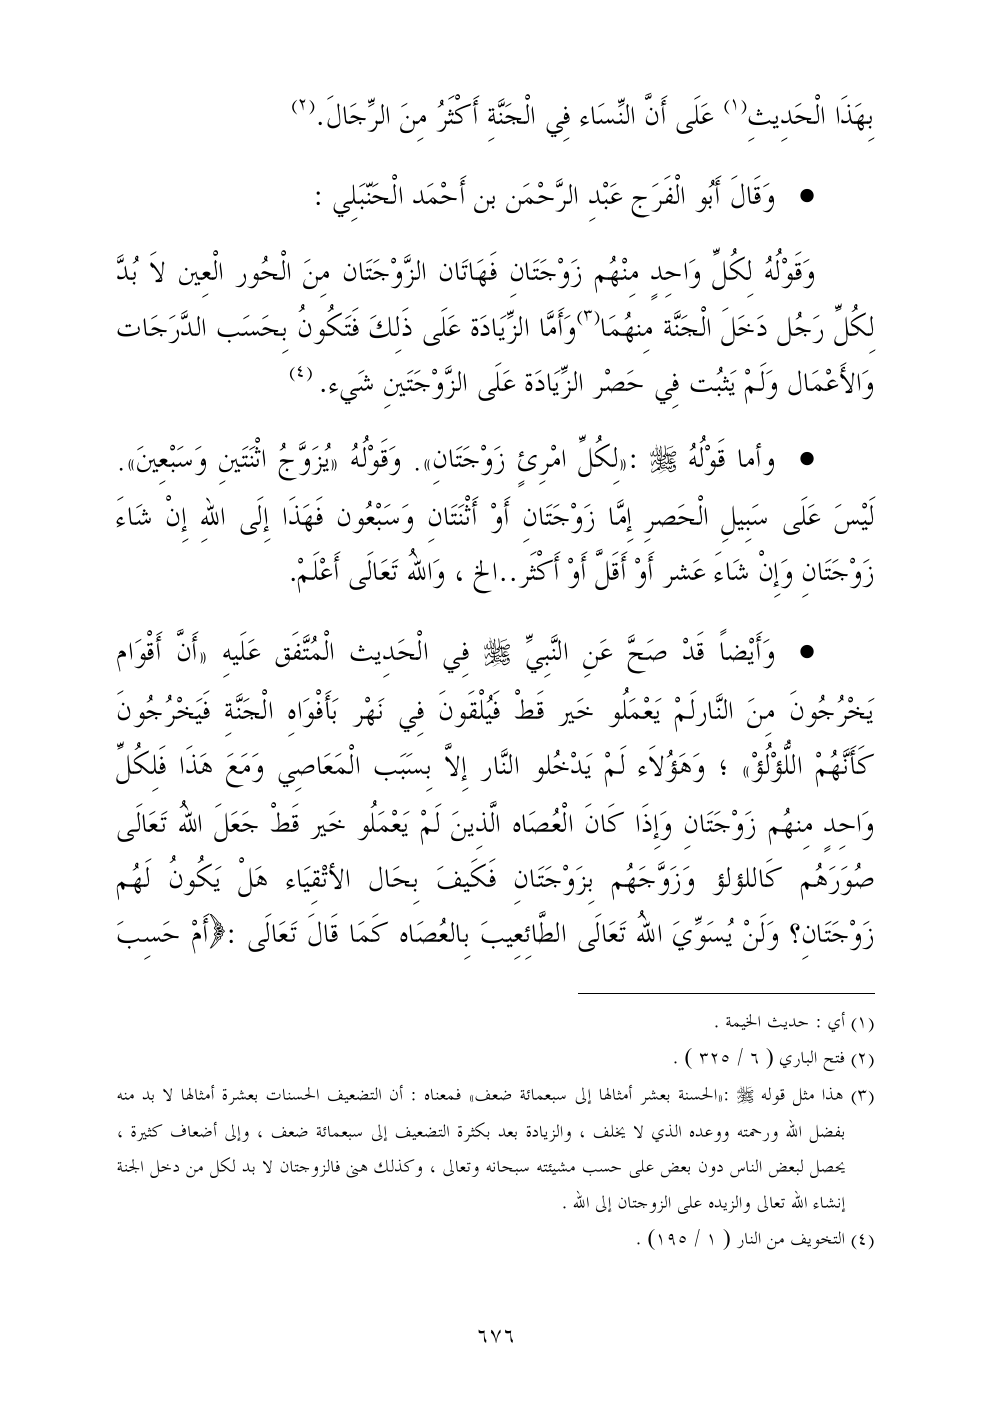 بِهَذَا الْحَدِيثِ(١) عَلَى أَنَّ النِّسَاء فِي الْجَنَّةِ أَكْثَرُ مِنَ الرِّجَالَ.(٢)
● وَقَالَ أَبُو الْفَرَج عَبْدِ الرَّحْمَن بن أَحْمَد الْحَنّبَلِي :
وَقَوْلُهُ لِكُلِّ وَاحِدٍ مِنْهُم زَوْجَتَانِ فَهَاتَان الزَّوْجَتَان مِنَ الْحُور الْعِين لاَ بُدَّ
لِكُلِّ رَجُل دَخَلَ الْجَنَّة مِنهُمَا(٣)وَأَمَّا الزِّيَادَة عَلَى ذَلِكَ فَتَكُونُ بِحَسَب الدَّرَجَات
وَالأَعْمَال وَلَمْ يَثبُت فِي حَصْر الزِّيَادَة عَلَى الزَّوْجَتَينِ شَيء. (٤)
● وأما قَوْلُهُ ﷺ :«لِكُلِّ امْرِئٍ زَوْجَتَانِ». وَقَوْلُهُ «يُزَوَّجُ اثْنَتَينِ وَسَبْعِينَ».
لَيْسَ عَلَى سَبِيلِ الْحَصرِ إِمَّا زَوْجَتَانِ أَوْ أَثْنَتَانِ وَسَبْعُون فَهَذَا إِلَى اللهِ إِنْ شَاءَ
زَوْجَتَانِ وَإِنْ شَاءَ عَشر أَوْ أَقَلَّ أَوْ أَكْثَر..الخ ، وَاللهُ تَعَالَى أَعْلَمْ.
● وَأَيْضاً قَدْ صَحَّ عَنِ النَّبِيِّ ﷺ فِي الْحَدِيث الْمُتَّفَق عَلَيهِ «أَنَّ أَقْوَام
يَخْرُجُونَ مِنَ النَّارلَمْ يَعْمَلُو خَير قَطْ فَيُلْقَونَ فِي نَهْر بَأَفْوَاهِ الْجَنَّةِ فَيَخْرُجُونَ
كَأَنَّهُمْ اللُّؤْلُؤْ» ؛ وَهَؤُلاَء لَمْ يَدْخُلو النَّار إِلاَّ بِسَبَب الْمَعَاصِي وَمَعَ هَذَا فَلِكُلِّ
وَاحِدٍ مِنهُم زَوْجَتَانِ وَإِذَا كَانَ الْعُصَاه الَّذِينَ لَمْ يَعْمَلُو خَير قَطْ جَعَلَ اللهُ تَعَالَى
صُوَرَهُم كَاللؤلؤ وَزَوَّجَهُم بِزَوْجَتَانِ فَكَيفَ بِحَال الأتْقِيَاء هَلْ يَكُونُ لَهُم
زَوْجَتَانِ؟ وَلَنْ يُسَوِّيَ اللهُ تَعَالَى الطَّائِعِيبَ بِالعُصَاه كَمَا قَالَ تَعَالَى :﴿أَمْ حَسِبَ
(١) أي : حديث الخيمة .
(٢) فتح الباري ( ٦ / ٣٢٥ ) .
(٣) هذا مثل قوله ﷺ :«الحسنة بعشر أمثالها إلى سبعمائة ضعف» فمعناه : أن التضعيف الحسنات بعشرة أمثالها لا بد منه
بفضل الله ورحمته ووعده الذي لا يخلف ، والزيادة بعد بكثرة التضعيف إلى سبعمائة ضعف ، وإلى أضعاف كثيرة ،
يحصل لبعض الناس دون بعض على حسب مشيئته سبحانه وتعالى ، وكذلك هنى فالزوجتان لا بد لكل من دخل الجنة
إنشاء الله تعالى والزيده على الزوجتان إلى الله .
(٤) التخويف من النار ( ١ / ١٩٥) .
٦٧٦